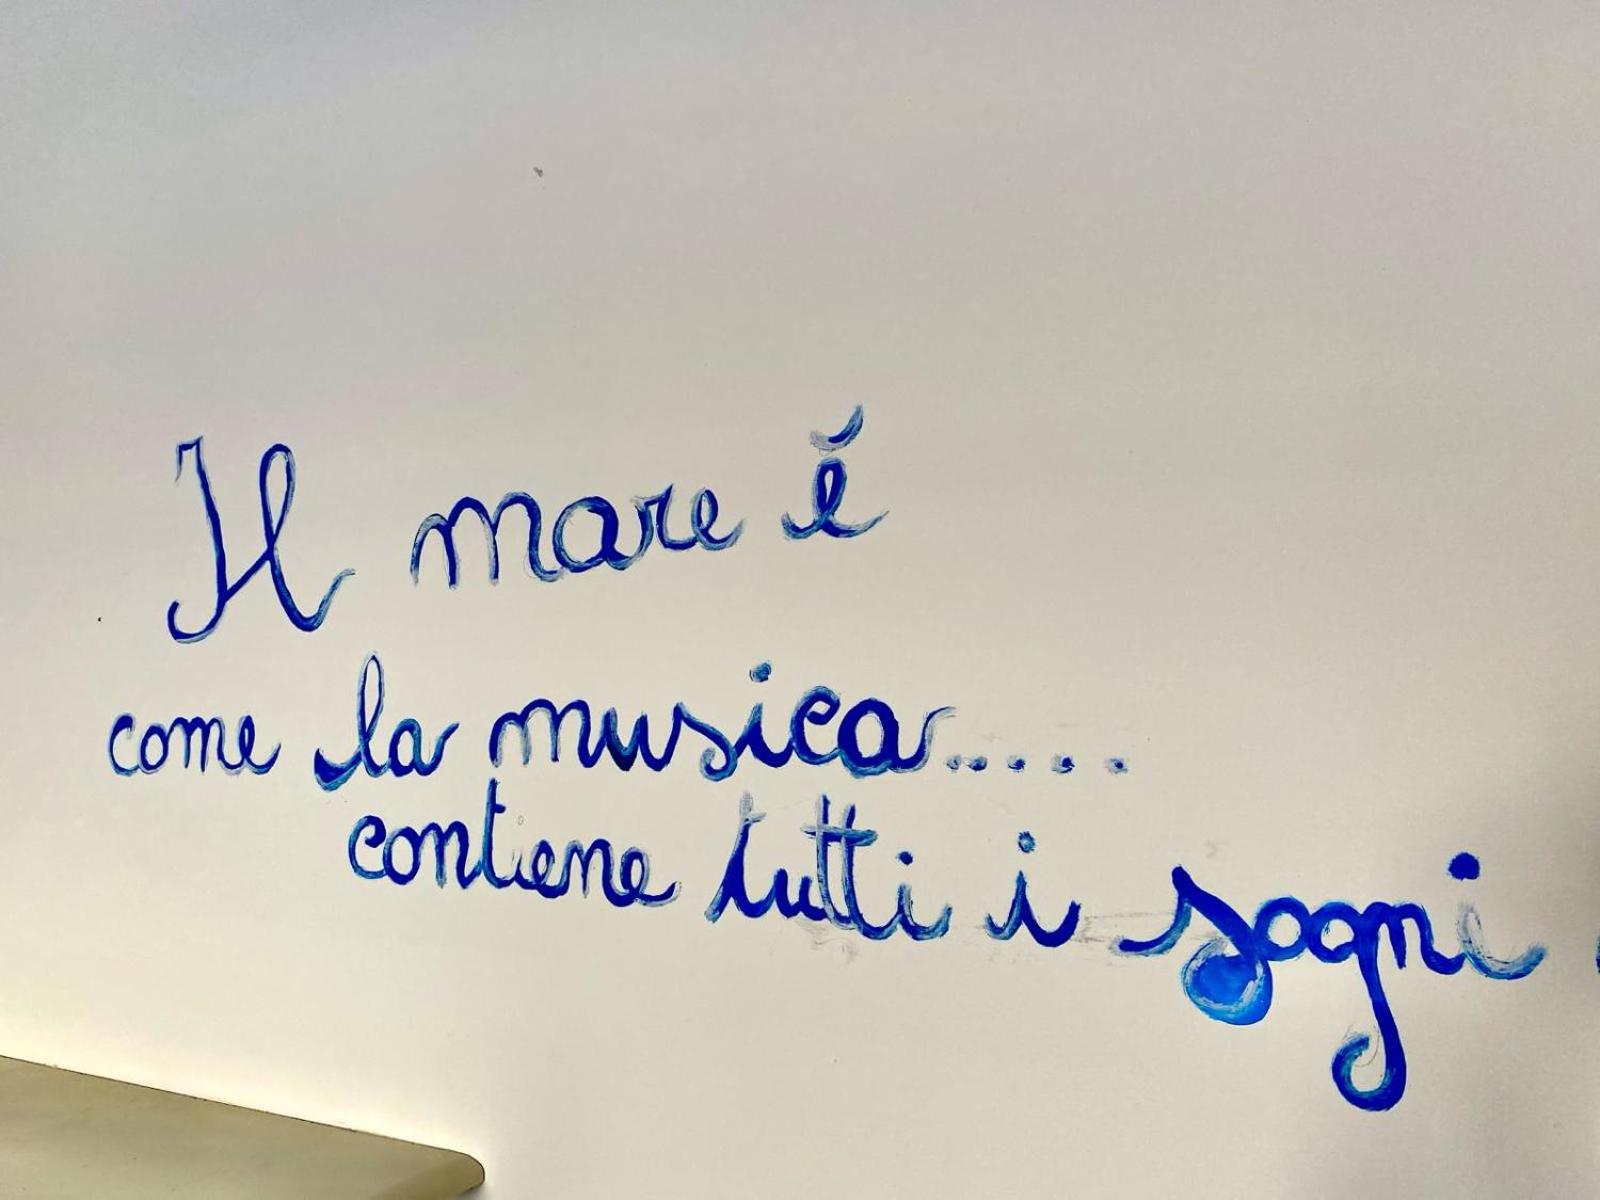 Il mare é
come la musica.....
contiene tutti i sogni